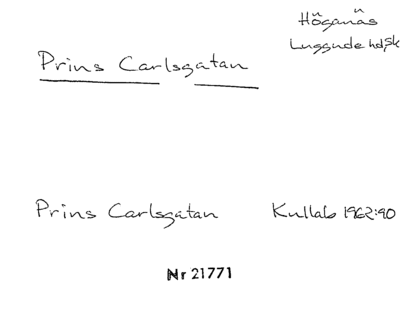 Höganäs
Luggude hd, Sk
Prins Carlsgatan
Prins Carlsgatan Kullab 1962:90
Nr 21771